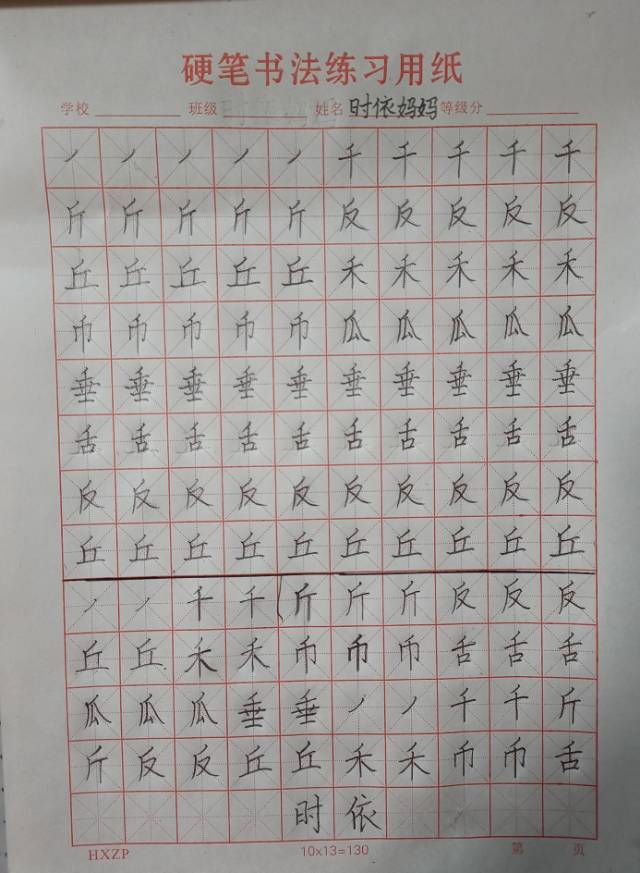 硬笔书法练习用纸
学校 班级 姓名 时依妈妈 等级分
㇒ ㇒ ㇒ ㇒ ㇒ 千 千 千 千 千
斤 斤 斤 斤 斤 反 反 反 反 反
丘 丘 丘 丘 丘 禾 禾 禾 禾 禾
币 币 币 币 币 瓜 瓜 瓜 瓜 瓜
垂 垂 垂 垂 垂 垂 垂 垂 垂 垂
舌 舌 舌 舌 舌 舌 舌 舌 舌 舌
反 反 反 反 反 反 反 反 反 反
丘 丘 丘 丘 丘 丘 丘 丘 丘 丘
㇒ ㇒ 千 千 斤 斤 斤 反 反 反
丘 丘 禾 禾 币 币 币 舌 舌 舌
瓜 瓜 瓜 垂 垂 ㇒ ㇒ 千 千 斤
斤 反 反 丘 丘 禾 禾 币 币 舌
时 依
HXZP 10x13=130 第 页